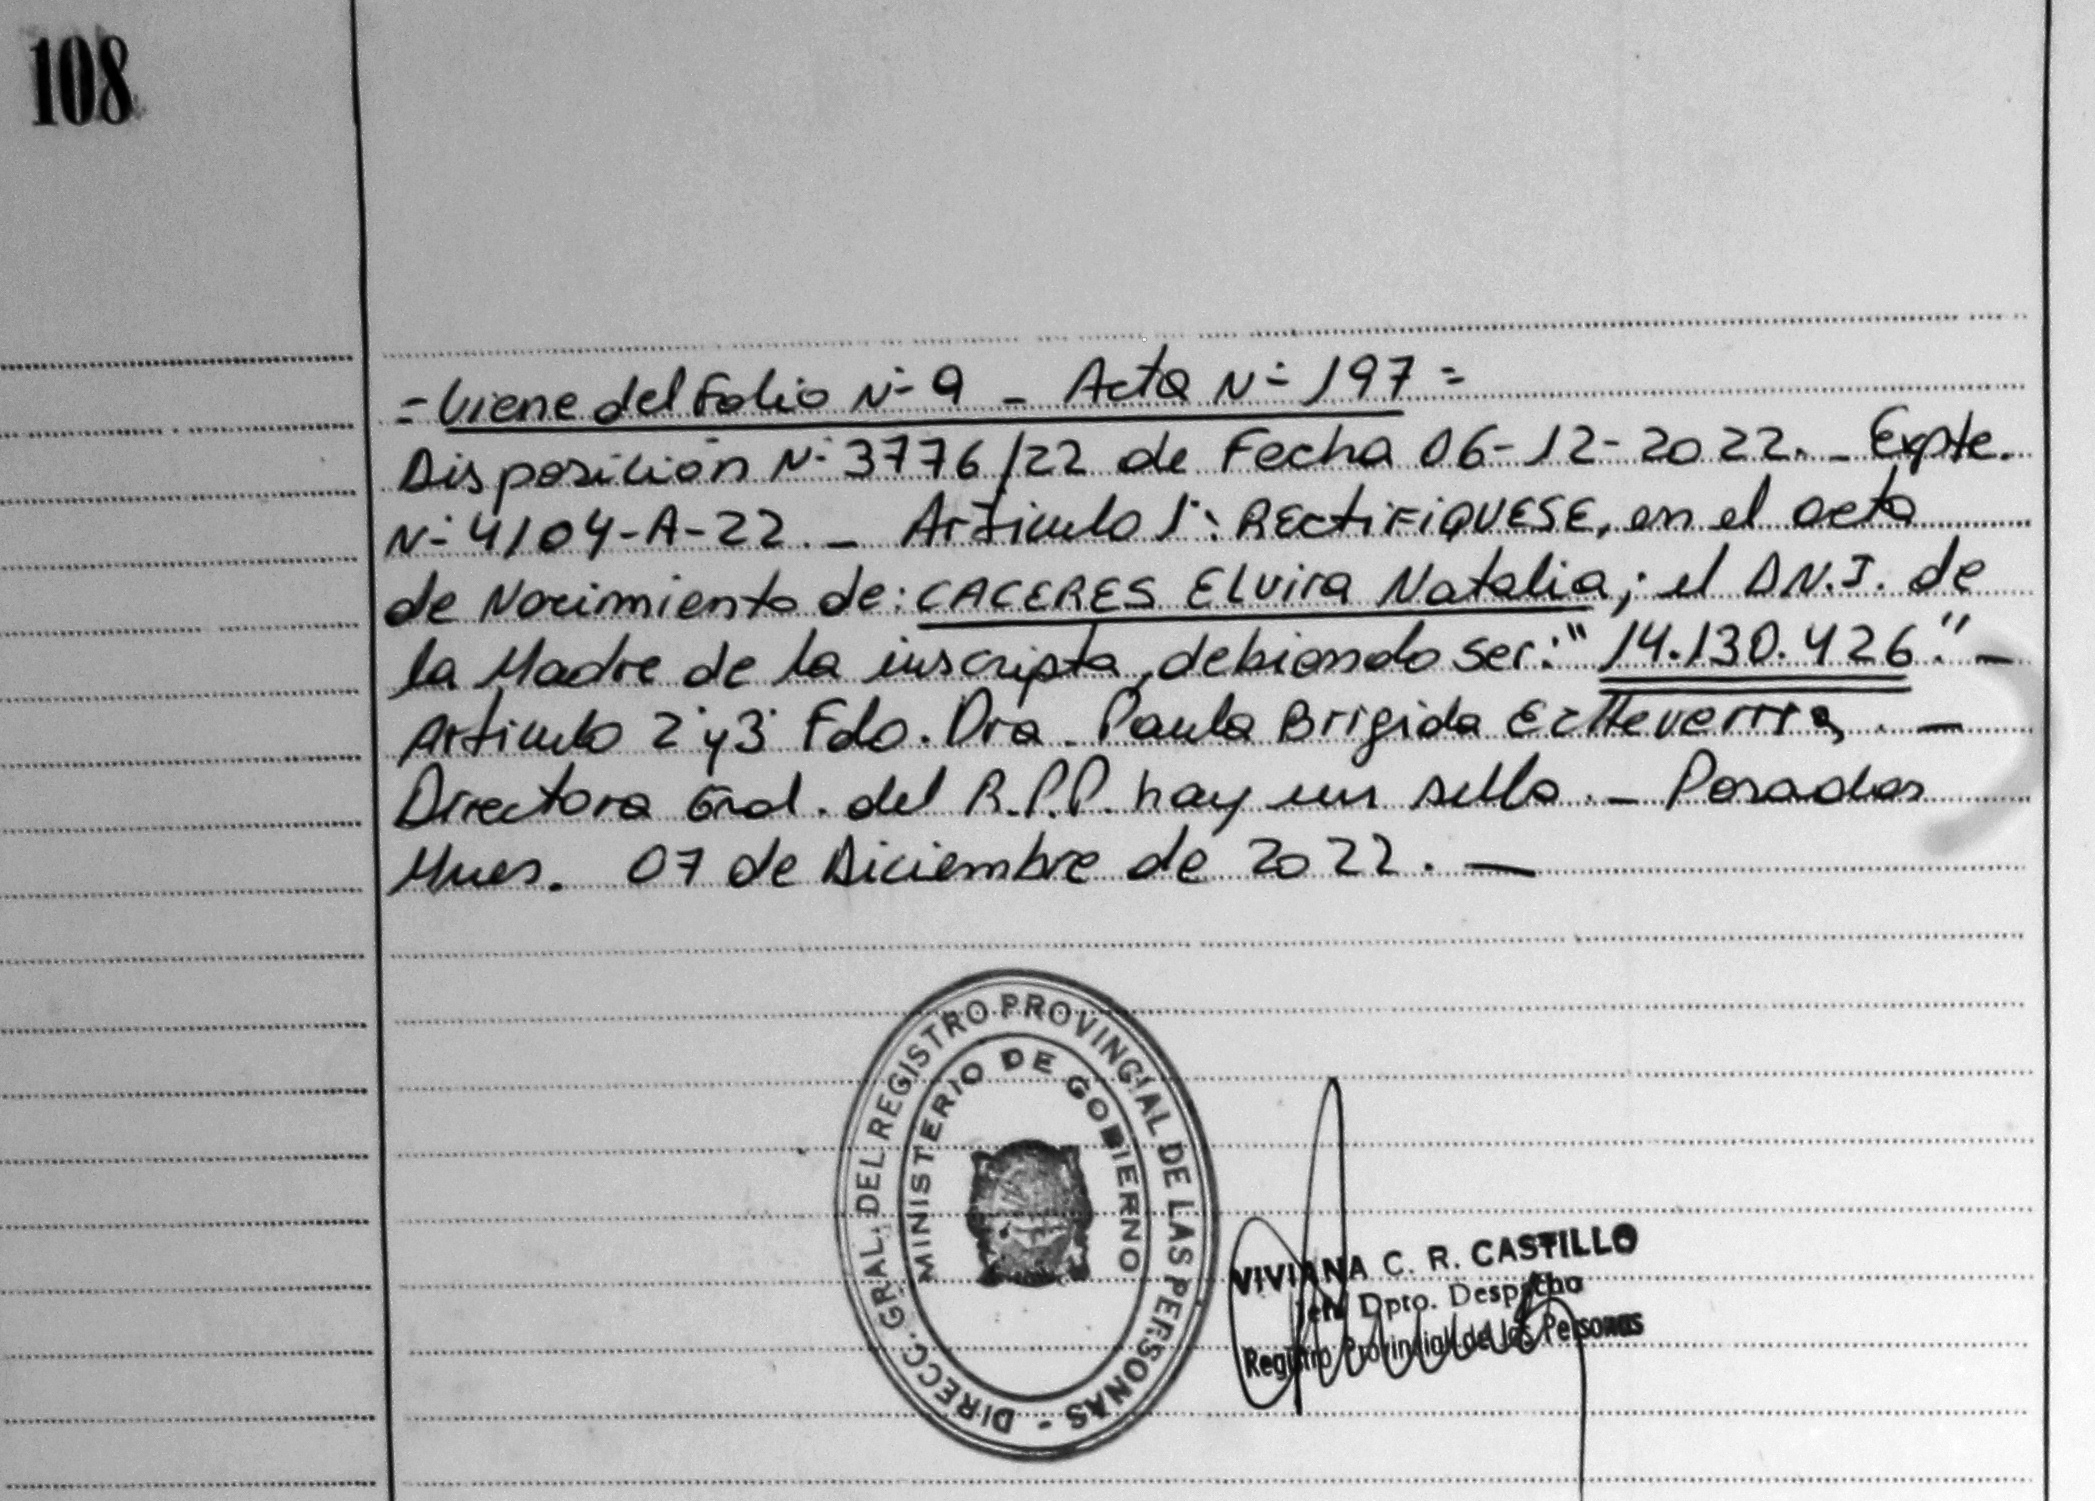 108
=Viene del Folio N- 9 - Acta N- 197=
Disposición N- 3776/22 de Fecha 06-12-2022. - Expte.
N- 4104-A-22. - Artículo 1°: RECTIFIQUESE, en el acta
de Nacimiento de: CACERES ELvira Natalia; el D.N.I. de
la Madre de la inscripta, debiendo ser: "14.130.426". -
Artículo 2° y 3° Fdo. Dra. Paula Brigida Ectteverria. -
Directora Gral. del R.P.P. hay un sello. - Posadas
Mnes. 07 de Diciembre de 2022. -
DIRECC. GRAL. DEL REGISTRO PROVINCIAL DE LAS PERSONAS -
MINISTERIO DE GOBIERNO
VIVIANA C. R. CASTILLO
Jefa Dpto. Despacho
Registro Provincial de las Personas